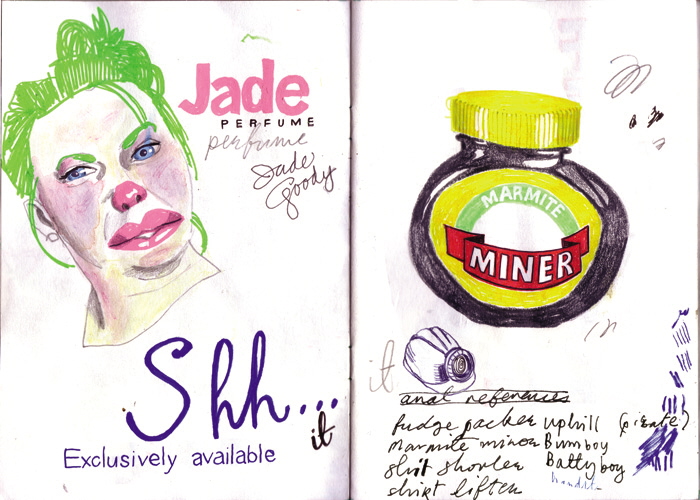 Jade
PERFUME
perfume
Jade
Goody
Shh...
it
Exclusively available
MARMITE
MINER
it
anal references
fudge packer uphill (pirate)
marmite miner Bumboy
shit shovler Battyboy
shirt lifter